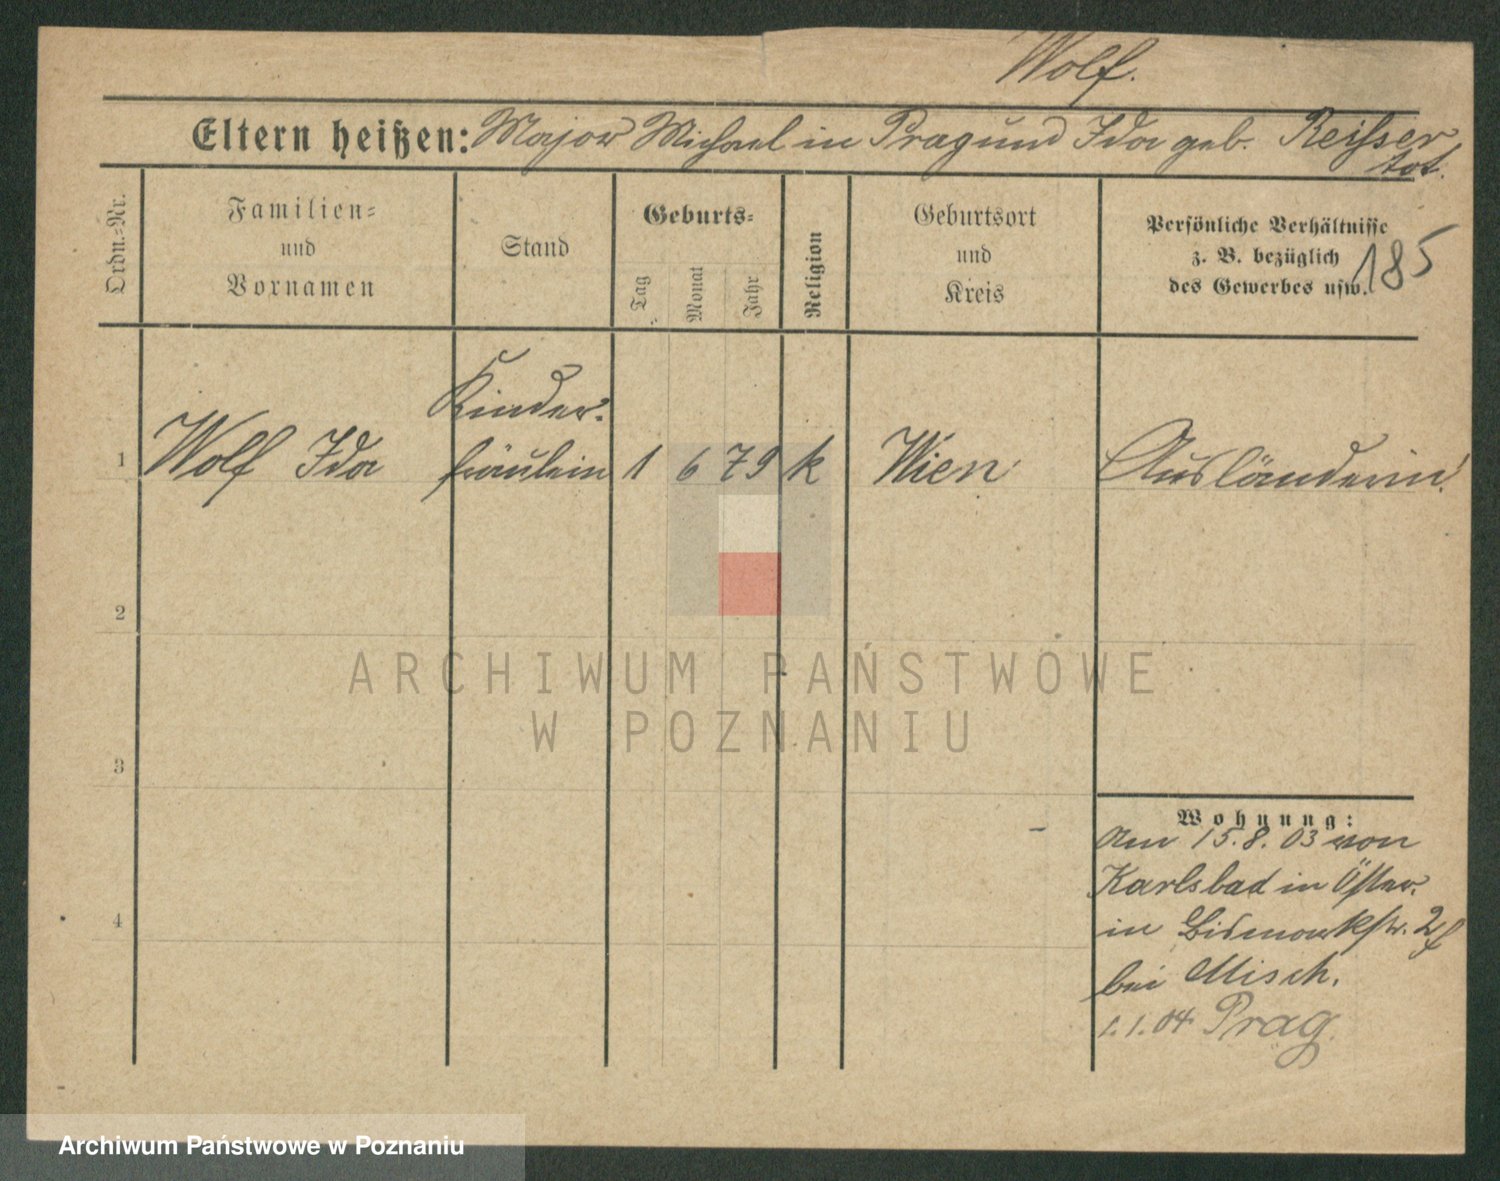 Wolf.
Eltern heißen: Major Michael in Prag und Ida geb. Reisser
tot.
Ordn.=Nr.
Familien=
und
Vornamen
Stand
Geburts=
Tag
Monat
Jahr
Religion
Geburtsort
und
Kreis
Persönliche Verhältnisse
z. B. bezüglich
des Gewerbes usw.
185
1 Wolf Ida Kinder-
fräulein 1 6 79 k Wien Ausländerin
2
3
4
Wohnung:
Am 15.8.03 von
Karlsbad in Öster.
in Bismarckstr. 2
bei Misch.
1.1.04 Prag
ARCHIWUM PAŃSTWOWE
W POZNANIU
Archiwum Państwowe w Poznaniu